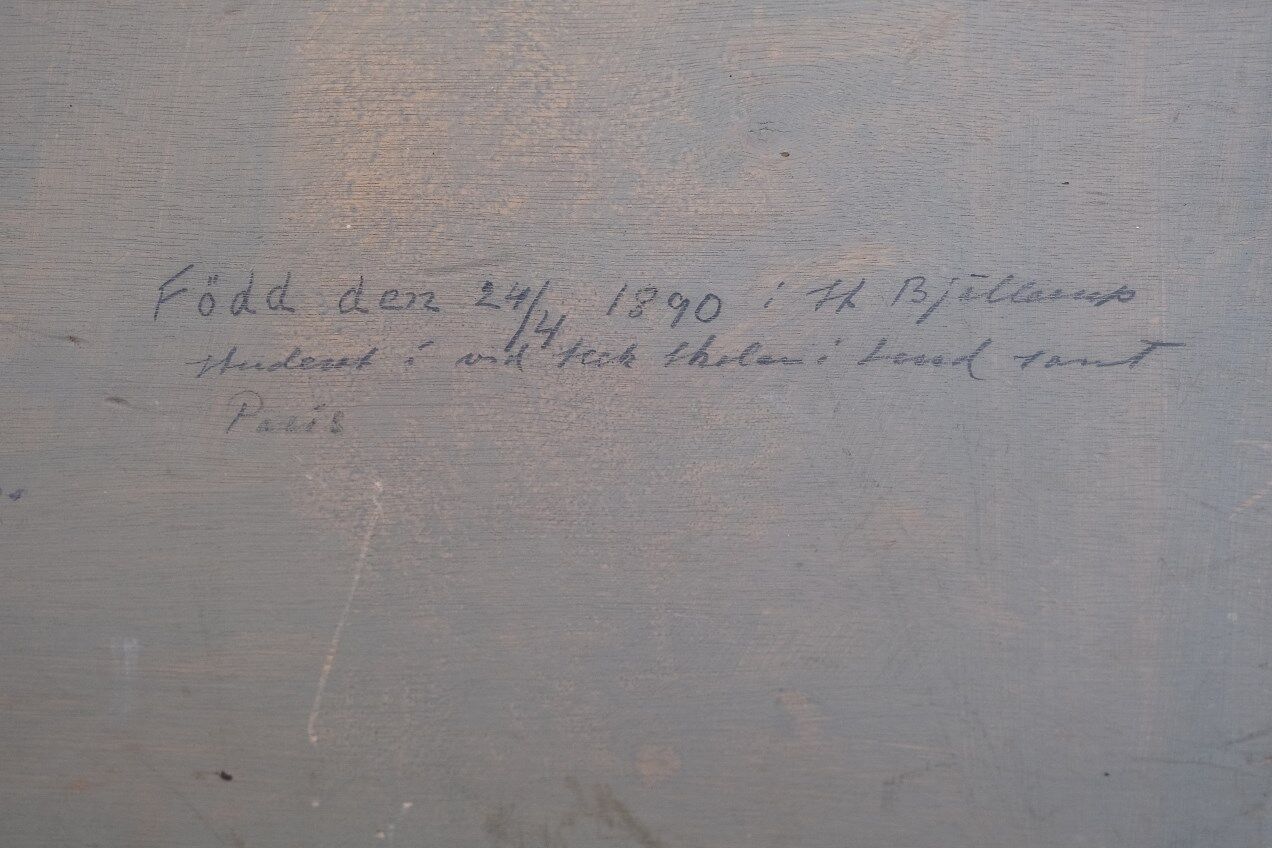 Född den 24/4 1890 i St Bjällerup
student i vid tek skolan i Lund samt
Paris